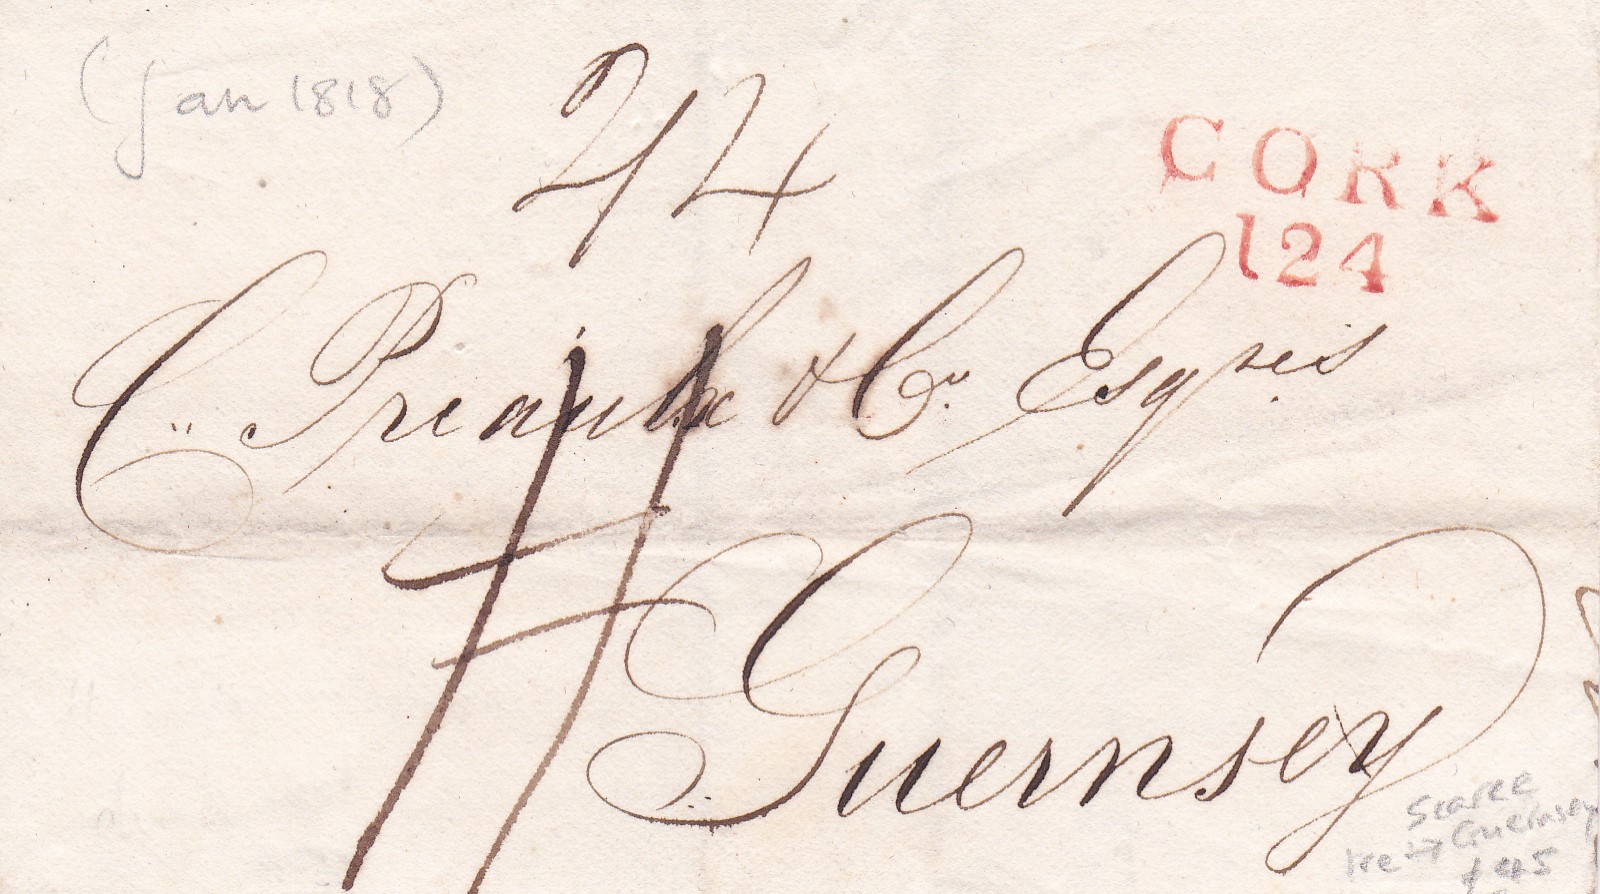 (Jan 1818)
CORK
124
C. Preaulx & Co. Esqres
Guernsey
Scarce
Ire → Guernsey
£45